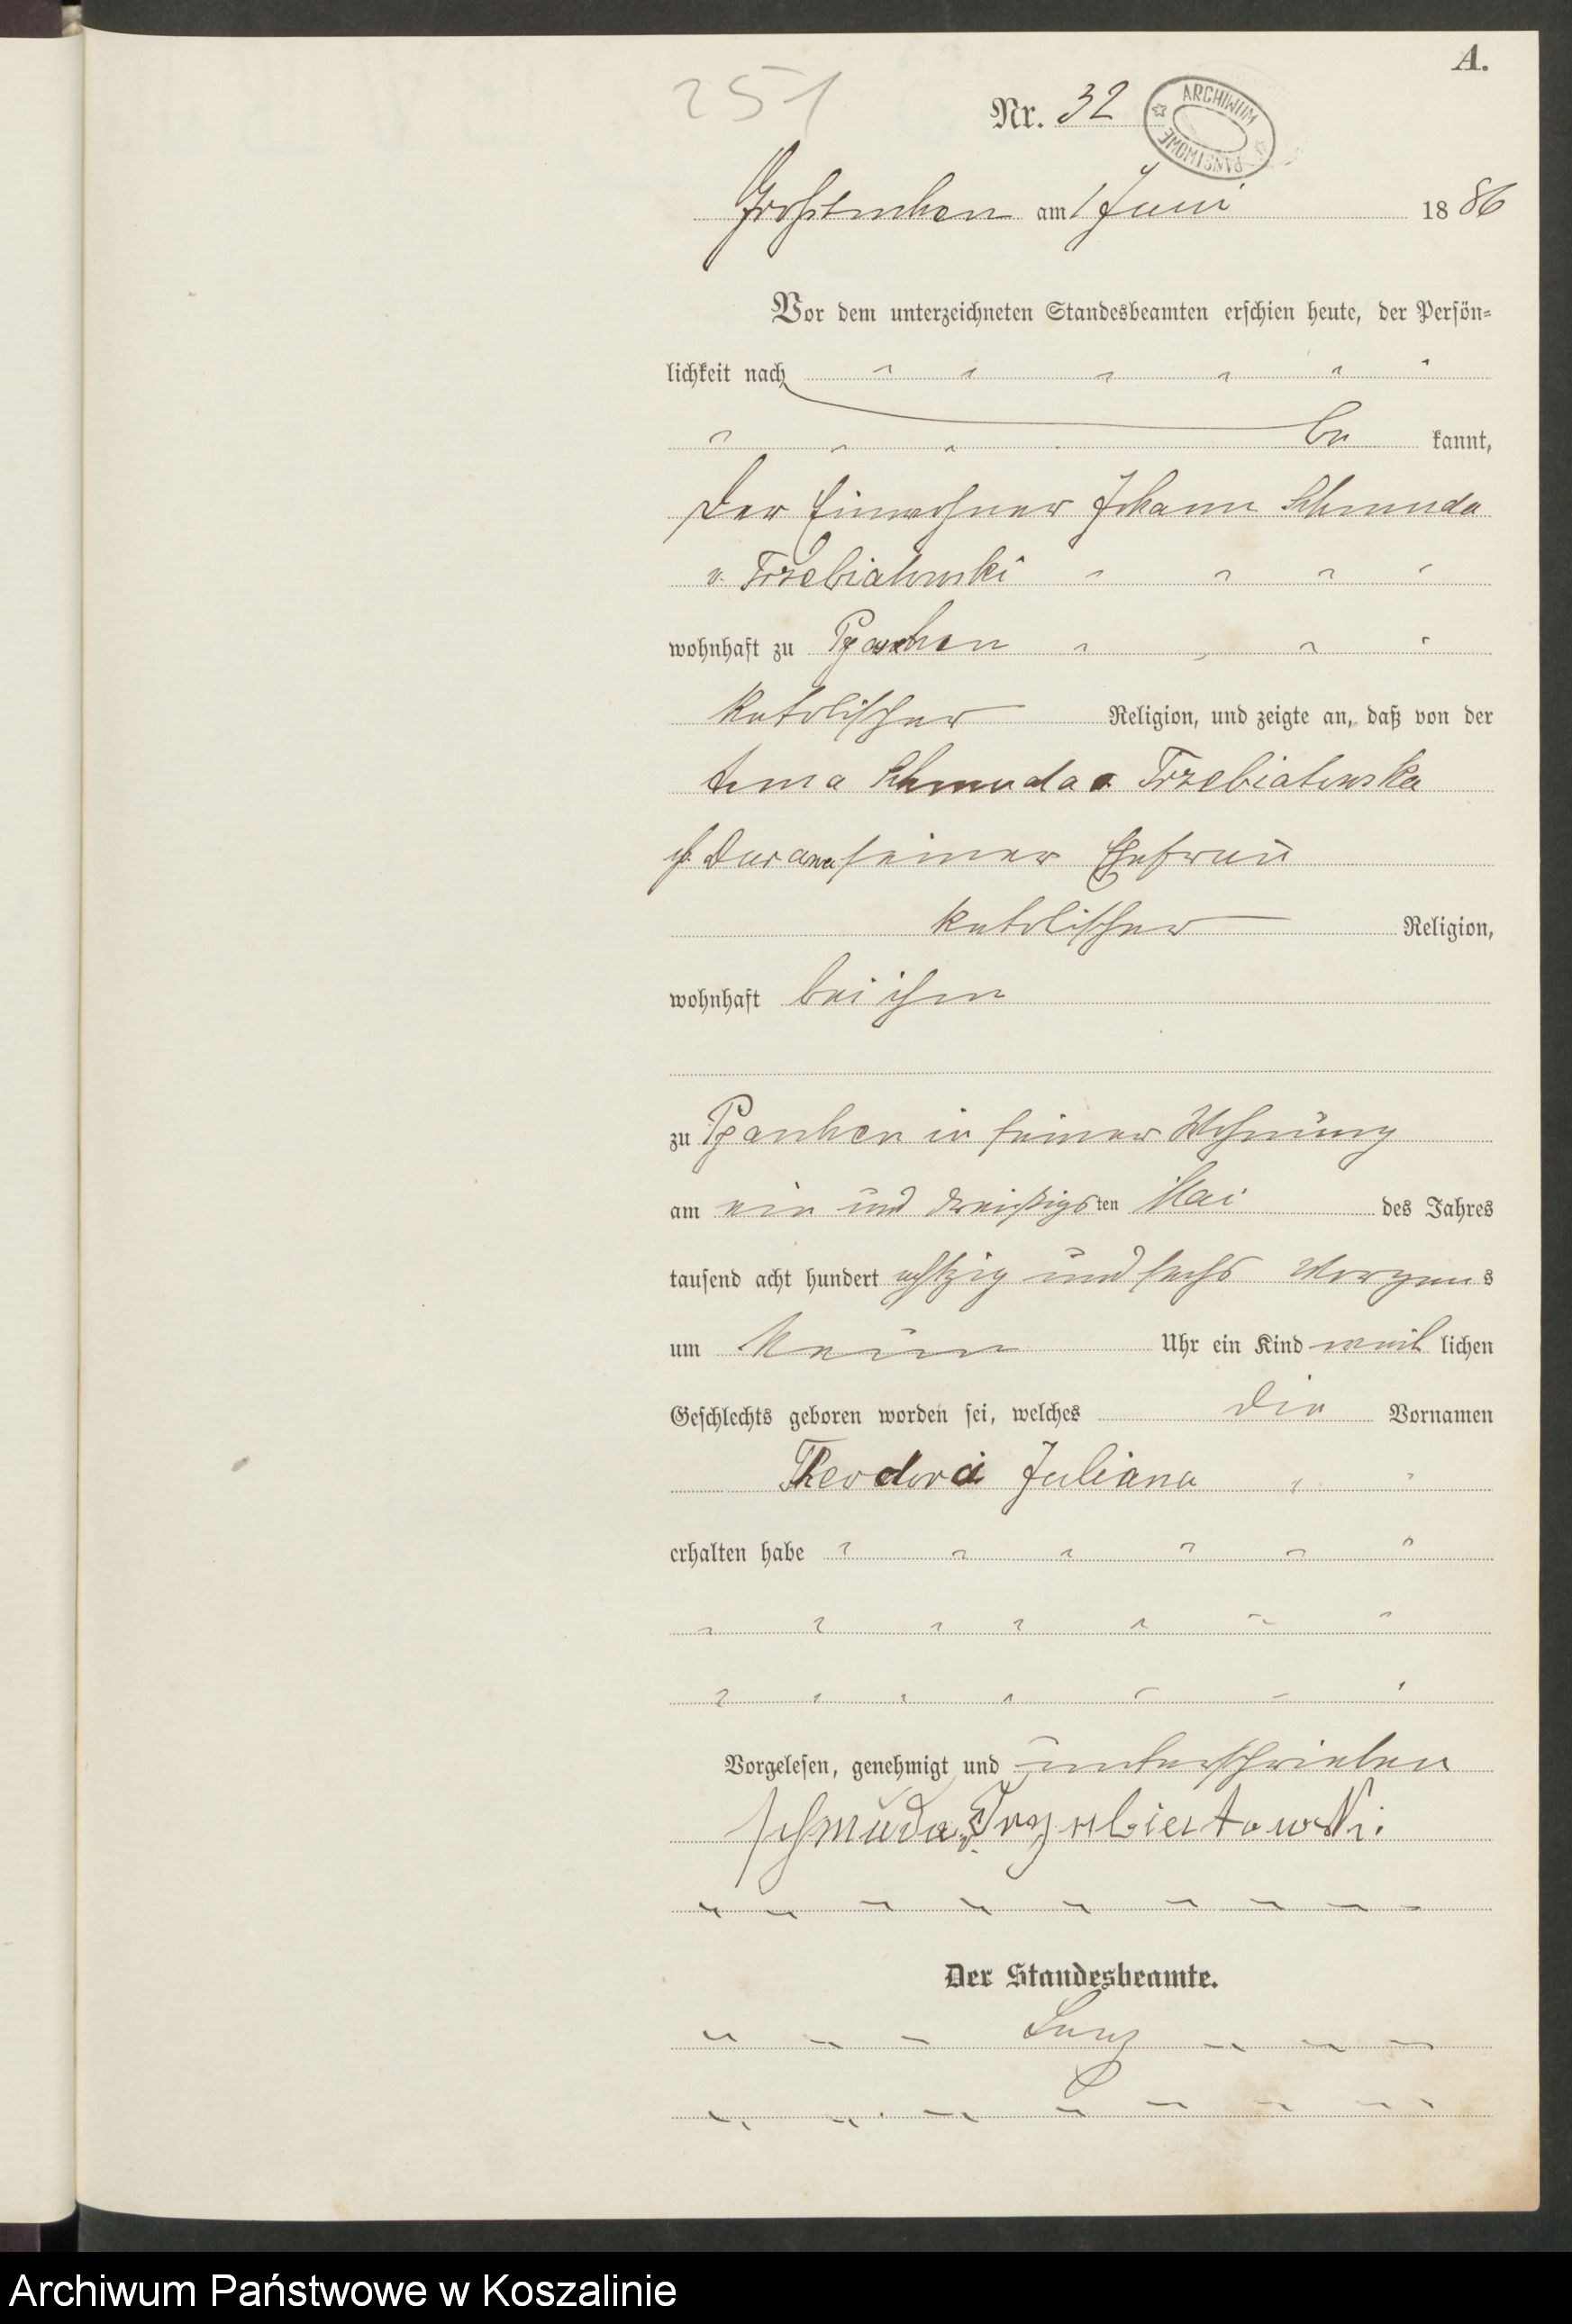 A.
251
Nr. 32
ARCHIWUM PAŃSTWOWE
Großtuchen am 1 Juni 1886
Vor dem unterzeichneten Standesbeamten erschien heute, der Persön-
lichkeit nach
be kannt,
Der Einwohner Johann Schmuda
v. Trzebiatowski
wohnhaft zu
katolischer Religion, und zeigte an, daß von der
Anna Schmuda v Trzebiatowska
seiner Ehefrau
katolischer Religion,
wohnhaft bei ihm
zu in seiner Wohnung
am ein und dreißigsten Mai des Jahres
tausend acht hundert achtzig und sechs Morgens
um Neun Uhr ein Kind weib lichen
Geschlechts geboren worden sei, welches die Vornamen
Theodora Juliana
erhalten habe
Vorgelesen, genehmigt und unterschrieben
Schmuda v. Trzebiatowski.
Der Standesbeamte.
Archiwum Państwowe w Koszalinie